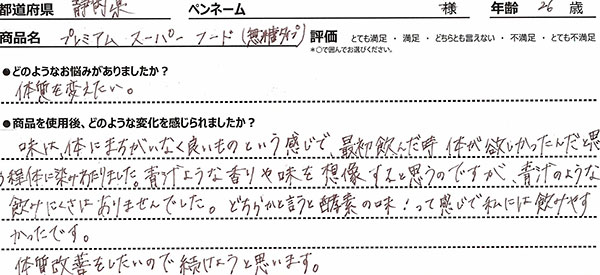 都道府県 静岡県 ペンネーム 様 年齢 26 歳
商品名 プレミアムスーパーフード(無糖タイプ) 評価 とても満足 ・ 満足 ・ どちらとも言えない ・ 不満足 ・ とても不満足
*○で囲んでお選びください。
●どのようなお悩みがありましたか?
体質を変えたい。
●商品を使用後、どのような変化を感じられましたか?
味は、体にまちがいなく良いものという感じで、最初飲んだ時 体が欲しかったんだと思
う程体に染みわたりました。青汁ような香りや味を想像すると思うのですが、青汁のような
飲みにくさはありませんでした。どちらかと言うと酵素の味!って感じで私には飲みやす
かったです。
体質改善をしたいので続けようと思います。